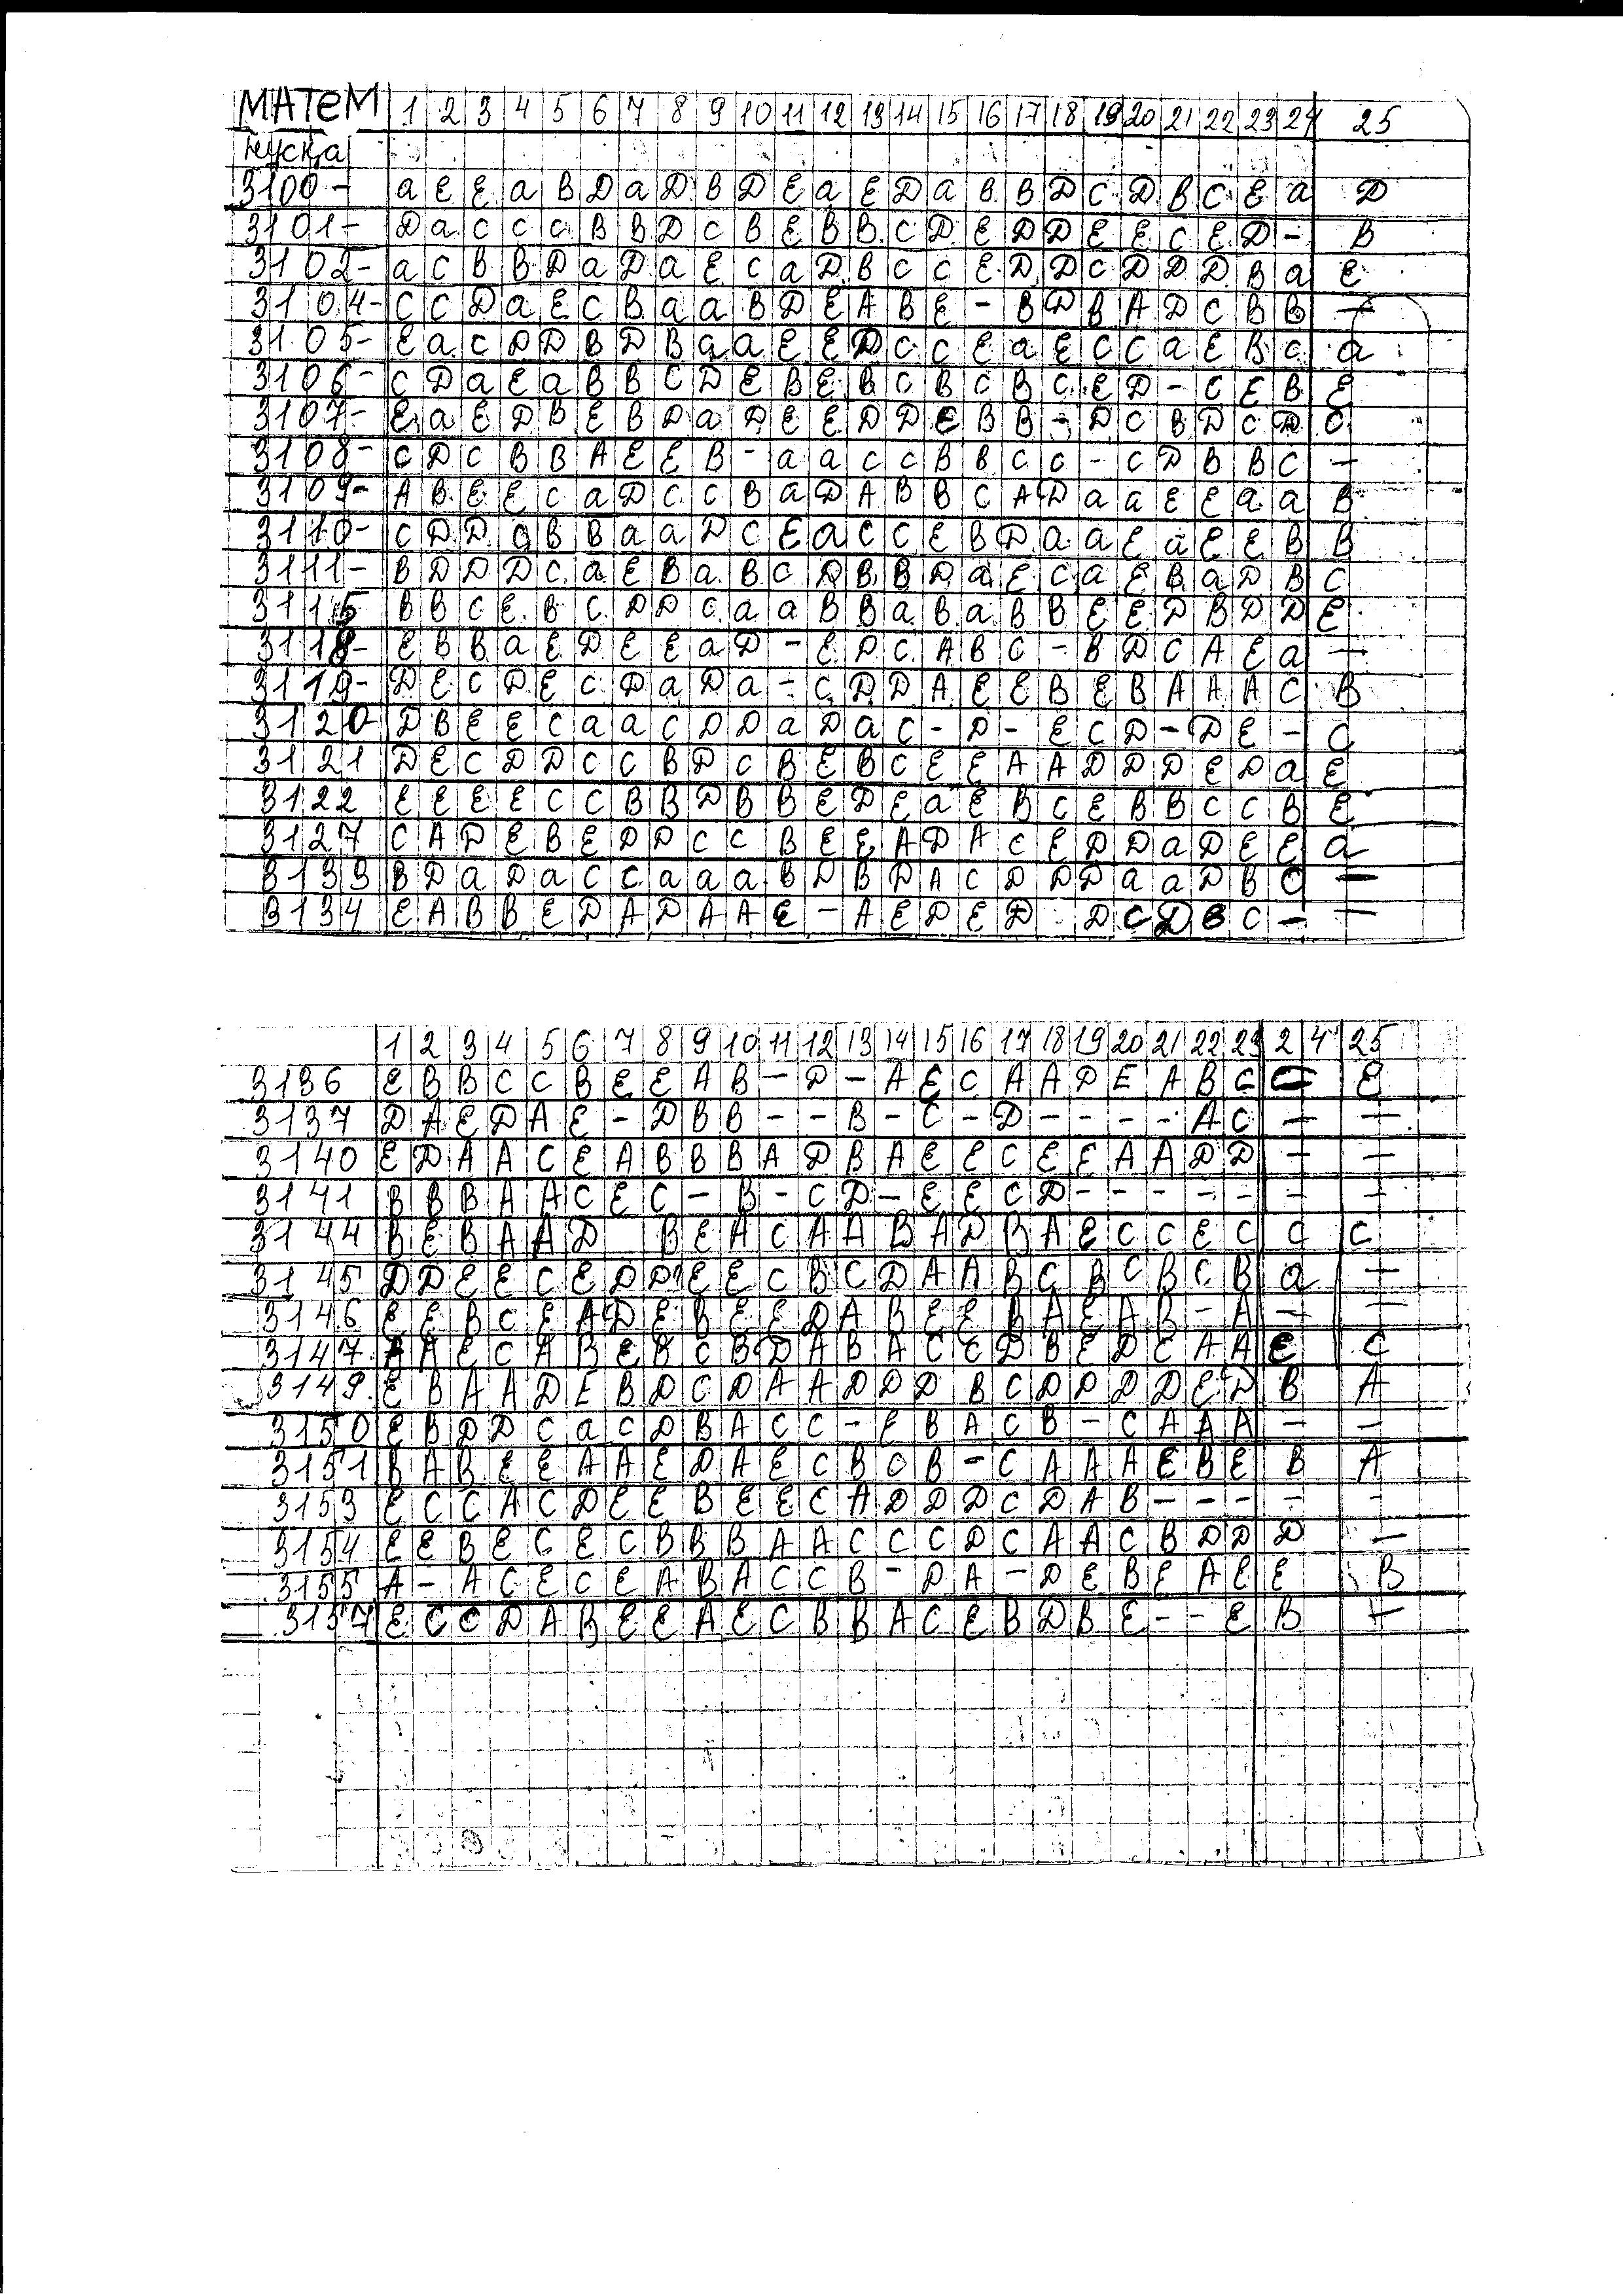 МАТЕМ 1 2 3 4 5 6 7 8 9 10 11 12 13 14 15 16 17 18 19 20 21 22 23 24 25
нусқа
3100- a E E a B D a D B D E a E D a B B D C D B C E a D
3101- D a C C C B B D C B E B B C D E D D E E C E D - B
3102- a C B B D a D a E C a D B C C E D D C D D D B a E
3104- C C D a E C B a a B D E A B E - B D B A D C B B -
3105- E a C D D B D B a a E E D C C E a E C C a E B C a
3106- C D a E a B B C D E B E B C B C B C E D - C E B E
3107- E a E D B E B D a D E E D D E B B - D C B D C D C
3108- C D C B B A E E B - a a C C B B C C - C D B B C -
3109- A B E E C a D C C B a D A B B C A D a a E E a a B
3110- C D D a B B a a D C E a C C E B D a a E a E E B B
3111- B D D D C a E B a B C D B B D a E C a E B a D B C
3115 B B C E B C D D C a a B B a B a B B E E D B D D E
3118- E B B a E D E E a D - E D C A B C - B D C A E a -
3119- D E C D E C D a D a - C D D A E E B E B A A A C B
3120 D B E E C a a C D D a D a C - D - E C D - D E - C
3121 D E C D D C C B D C B E B C E E A A D D D E D a E
3122 E E E E C C B B D B B E D E a E B C E B B C C B E
3127 C A D E B E D D C C B E E A D A C E D D a D E E a
3133 B D a D a C C a a a B D B D A C D D D a a D B C -
3134 E A B B E D A D A A E - A E D E D - D C D B C - -
1 2 3 4 5 6 7 8 9 10 11 12 13 14 15 16 17 18 19 20 21 22 23 24 25
3136 E B B C C B E E A B - D - A E C A A D E A B C C E
3137 D A E D A E - D B B - - B - C - D - - - - A C - -
3140 E D A A C E A B B B A D B A E E C E E A A D D - -
3141 B B B A A C E C - B - C D - E E C D - - - - - - -
3144 B E B A A D B E A C A A B A D B A E C C E C C C
3145 D D E E C E D D E E C B C D A A B C B C B C B a -
3146 E E B C E A D E B E E D A B E E B A E A B - A - -
3147 A A E C A B E B C B D A B A C E D B E D C A A E C
3149 E B A A D E B D C D A A D D D B C D D D D E D B A
3150 E B D D C a C D B A C C - E B A C B - C A A A - -
3151 B A B E E A A E D A E C B C B - C A A A E B E B A
3153 E C C A C D E E B E E C A D D D C D A B - - - - -
3154 E E B E C E C B B B A A C C C D C A A C B D D D -
3155 A - A C E C E A B A C C B - D A - D E B E A E E B
3157 E C C D A B E E A E C B B A C E B D B E - - E B -